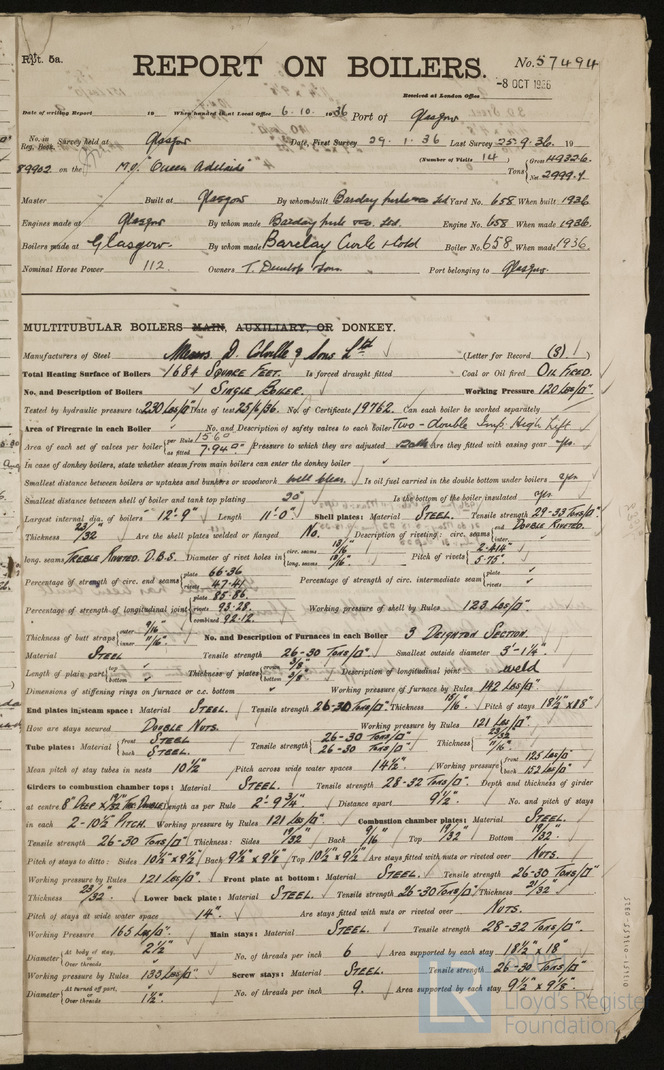 Rpt. 5a.
REPORT ON BOILERS.
No. 57494
-8 OCT 1936
Received at London Office
Date of writing Report 19 When handed in at Local Office 6.10. 1936 Port of Glasgow
No. in Reg. Book. Survey held at Glasgow Date, First Survey 29.1.36 Last Survey 25.9.36. 19
(Number of Visits 14)
89902 on the M.V. "Queen Adelaide" Tons {Gross 4932.6. Net 2999.4
Master Built at Glasgow By whom built Barclay Curle & Co Ltd Yard No. 658 When built 1936
Engines made at Glasgow By whom made Barclay Curle & Co. Ltd. Engine No. 658 When made 1936.
Boilers made at Glasgow. By whom made Barclay Curle & Co Ld Boiler No. 658 When made 1936.
Nominal Horse Power 112. Owners T. Dunlop & Sons. Port belonging to Glasgow.
MULTITUBULAR BOILERS MAIN, AUXILIARY, OR DONKEY.
Manufacturers of Steel Messrs D. Colville & Sons Ltd (Letter for Record (S).)
Total Heating Surface of Boilers 1684 SQUARE FEET. Is forced draught fitted Coal or Oil fired OIL FIRED.
No. and Description of Boilers 1 SINGLE BOILER. Working Pressure 120 LBS/□".
Tested by hydraulic pressure to 230 LBS/□" Date of test 25/6/36. No. of Certificate 19762. Can each boiler be worked separately
Area of Firegrate in each Boiler No. and Description of safety valves to each boiler Two - double Imp. High Lift
Area of each set of valves per boiler {per Rule 15.6□" as fitted 7.94□" Pressure to which they are adjusted Are they fitted with easing gear yes.
In case of donkey boilers, state whether steam from main boilers can enter the donkey boiler
Smallest distance between boilers or uptakes and bunkers or woodwork well clear. Is oil fuel carried in the double bottom under boilers yes
Smallest distance between shell of boiler and tank top plating 20" Is the bottom of the boiler insulated yes.
Largest internal dia. of boilers 12'-9" Length 11'-0" Shell plates: Material STEEL Tensile strength 29-33 TONS/□"
Thickness 23/32" Are the shell plates welded or flanged No. Description of riveting: circ. seams {end DOUBLE RIVETED. inter.
long. seams TREBLE RIVETED. D.B.S. Diameter of rivet holes in {circ. seams 13/16" long. seams 13/16" Pitch of rivets {2.414" 5.75"
Percentage of strength of circ. end seams {plate 66.36 rivets 47.41 Percentage of strength of circ. intermediate seam {plate rivets
Percentage of strength of longitudinal joint {plate 85.86. rivets 93.28. combined 92.12. Working pressure of shell by Rules 123 LBS/□".
Thickness of butt straps {outer 9/16" inner 11/16" No. and Description of Furnaces in each Boiler 3 DEIGHTON SECTION.
Material STEEL Tensile strength 26-30 TONS/□" Smallest outside diameter 3'-1¼"
Length of plain part {top bottom Thickness of plates {crown 3/8" bottom 3/8" Description of longitudinal joint weld
Dimensions of stiffening rings on furnace or c.c. bottom Working pressure of furnace by Rules 142 LBS/□".
End plates in steam space: Material STEEL. Tensile strength 26-30 TONS/□" Thickness 15/16" Pitch of stays 18½" x 18"
How are stays secured DOUBLE NUTS. Working pressure by Rules 121 LBS/□"
Tube plates: Material {front STEEL back STEEL. Tensile strength {26-30 TONS/□" 26-30 TONS/□" Thickness {23/32" 11/16"
Mean pitch of stay tubes in nests 10½" Pitch across wide water spaces 14½". Working pressure {front 125 LBS/□" back 152 LBS/□"
Girders to combustion chamber tops: Material STEEL. Tensile strength 28-32 TONS/□". Depth and thickness of girder
at centre 8" DEEP x 19/32" THK. DOUBLE Length as per Rule 2'-9¾" Distance apart 9½". No. and pitch of stays
in each 2-10½" PITCH. Working pressure by Rules 121 LBS/□" Combustion chamber plates: Material STEEL.
Tensile strength 26-30 TONS/□" Thickness: Sides 19/32" Back 9/16" Top 19/32" Bottom 19/32"
Pitch of stays to ditto: Sides 10½" x 9½" Back 9½" x 9⅛" Top 10½" x 9½" Are stays fitted with nuts or riveted over NUTS.
Working pressure by Rules 121 LBS/□" Front plate at bottom: Material STEEL. Tensile strength 26-30 TONS/□"
Thickness 23/32". Lower back plate: Material STEEL. Tensile strength 26-30 TONS/□" Thickness 21/32"
Pitch of stays at wide water space 14". Are stays fitted with nuts or riveted over NUTS.
Working Pressure 165 LBS/□" Main stays: Material STEEL. Tensile strength 28-32 TONS/□"
Diameter {At body of stay, or Over threads 2½" No. of threads per inch 6 Area supported by each stay 18½" x 18"
Working pressure by Rules 133 LBS/□" Screw stays: Material STEEL. Tensile strength 26-30 TONS/□"
Diameter {At turned off part, or Over threads 1½". No. of threads per inch 9. Area supported by each stay 9½" x 9⅛".
Lloyd's Register
Foundation